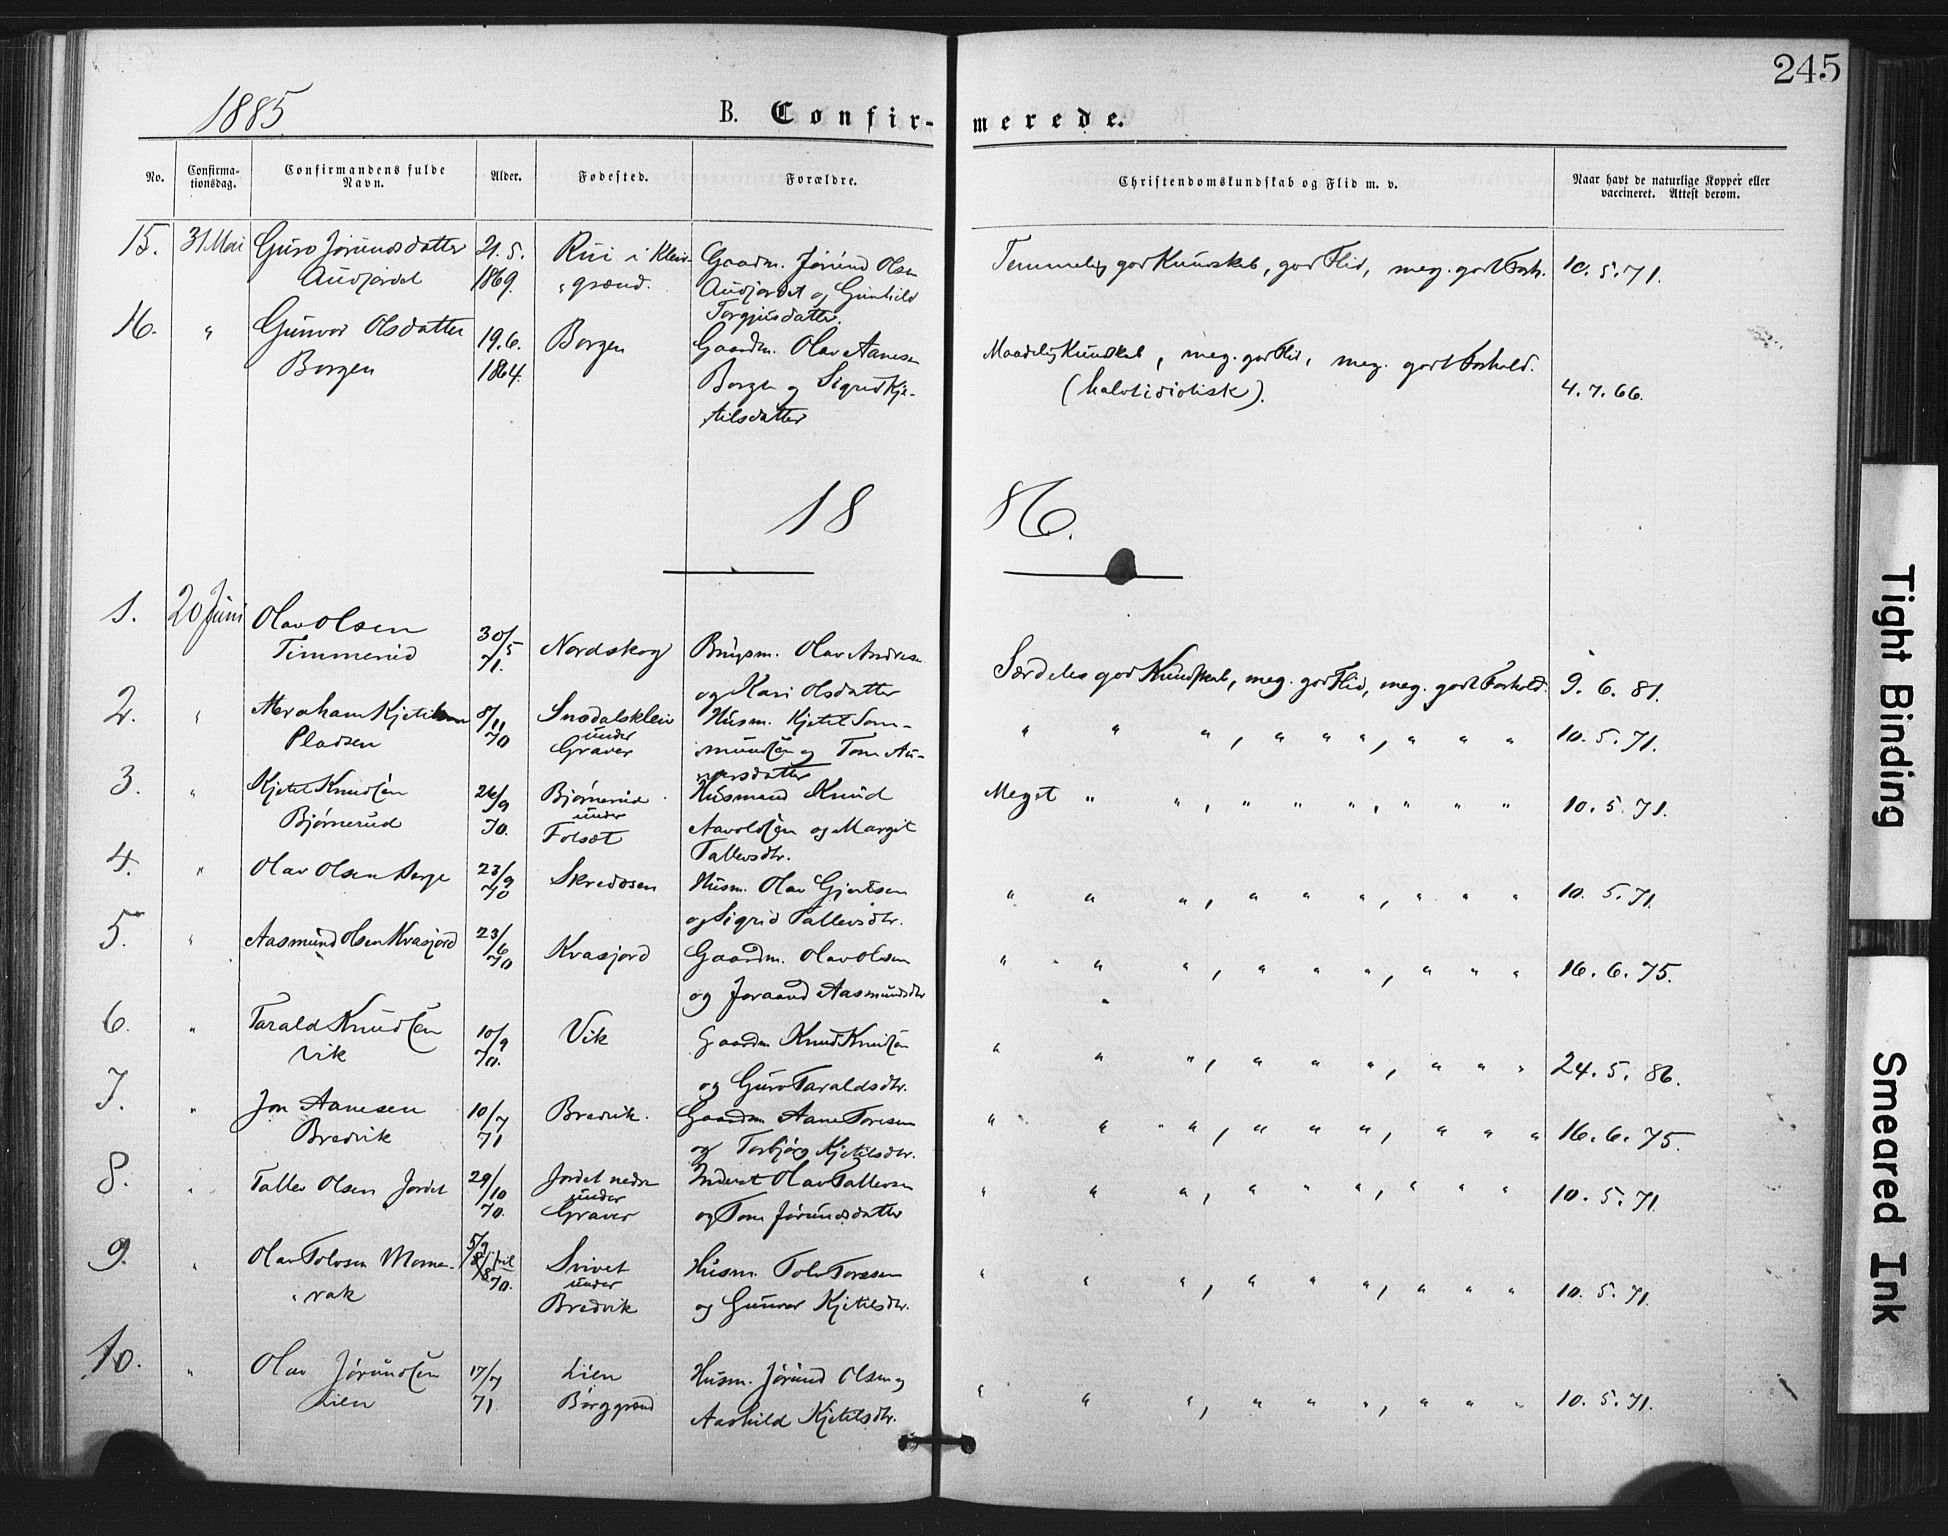 245
1885
B. Confirmerede.
No.
Confirmationsdag.
Confirmandens fulde Navn.
Alder.
Fødested.
Forældre.
Christendomskundskab og Flid m. v.
Naar havt de naturlige Kopper eller vaccineret. Attest derom.
15. 31 Mai Guro Jørundsdatter 21. 5. Rui i Kleiv- Gaardm. Jørund Olsen Temmelig god Kundskab, god Flid, meg. godt Forh. 10. 5. 71.
Audjordet 1869. grænd. Audjordet og Gunhild
Torgjusdatter.
16. " Gunvor Olsdatter 19.6. Borgen Gaardm. Olav Aanesen Maadelig Kundskab, meg. god Flid, meg. godt Forhold.
Borgen 1864. Borgen og Sigrid Kje- (halvtidiotisk). 4. 7. 66.
tilsdatter
18 86.
1. 20 Juni Olav Olsen 30/5 Nordskog Brugsm. Olav Andres. Særdeles god Kundskab, meg. god Flid, meg. godt Forhold. 9. 6. 81.
Timmerud 71. og Kari Olsdatter
2. " Abraham Kjetilsen 8/11 Snodalskleiv Husm. Kjetil Som- " " ", " " ", " " " 10. 5. 71.
Pladsen 70 under Graver mundsen og Tone
datter
3. " Kjetil Knudsen 26/9 Bjørnerud Husmand Knud Meget " ", " " ", " " " 10. 5. 71.
Bjørnerud 70. under Folsæt Aavoldsen og Margit
Tallevsdtr.
4. " Olav Olsen Berge 23/9 Skredosen Husm. Olav Gjertsen " " ", " " ", " " " 10. 5. 71.
70 og Sigrid Tallevsdtr.
5. " Aasmund Olsen Kvasjord 23/6 Kvasjord Gaardm. Olav Olsen " " ", " " ", " " " 16. 6. 75.
70 og Joraand Aasmundsdtr
6. " Tarald Knudsen 10/9 Vik Gaardm Knud Knudsen " " ", " " ", " " " 24. 5. 86.
Vik 70. og Guro Taraldsdtr.
7. " Jon Aanesen 10/7 Bredvik. Gaardm Aane Toresen " " ", " " ", " " " 16. 6. 75.
Bredvik 71 og Torbjørg Kjetilsdtr.
8. " Tallev Olsen Jordet 29/10 Jordet nedre Inderst Olav Tallevsen " " ", " " ", " " " 10. 5. 71.
70. under Graver og Tone Jørundsdatter
9. " Olav Tolvsen Momrak 70. Svivet Husm. Tolv Toresen " " ", " " ", " " " 10. 5. 71.
under Bredvik og Gunvor Kjetilsdtr.
10. " Olav Jørundsen 17/7 Lien Husm. Jørund Olsen og " " ", " " ", " " " 10. 5. 71.
Lien 71. Børggrænd Aashild Kjetilsdtr.
Tight Binding
Smeared Ink